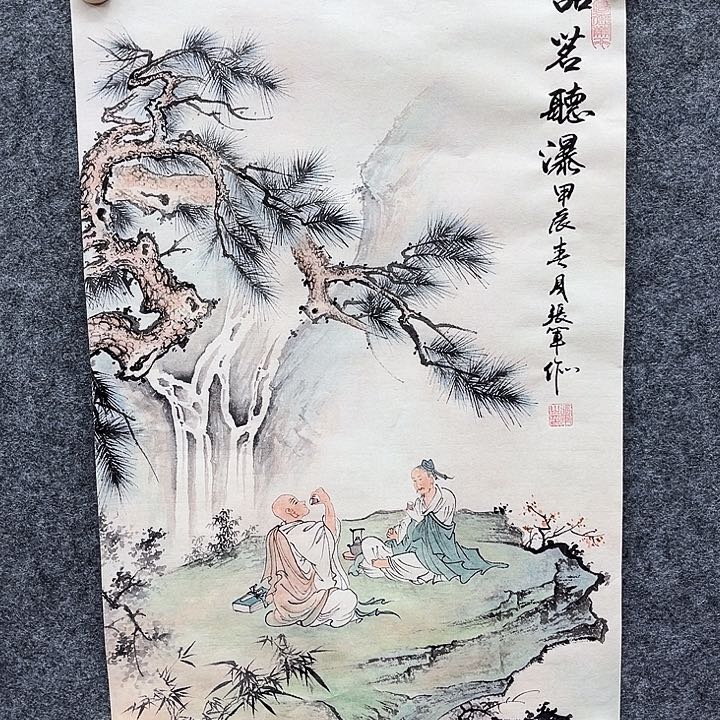 品茗聽瀑甲辰春月張軍作